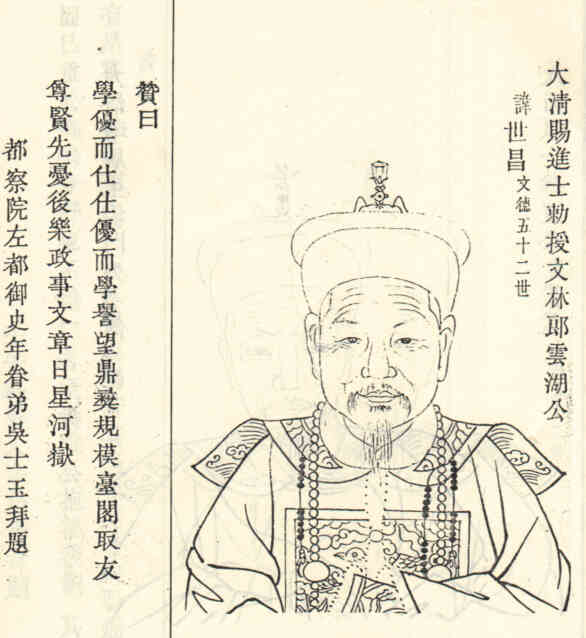 大清賜進士勅授文林郎雲湖公
諱世昌文德五十二世
贊曰
學優而仕仕優而學譽望鼎彜規模臺閣取友
尊賢先憂後樂政事文章日星河嶽
都察院左都御史年眷弟吳士玉拜題